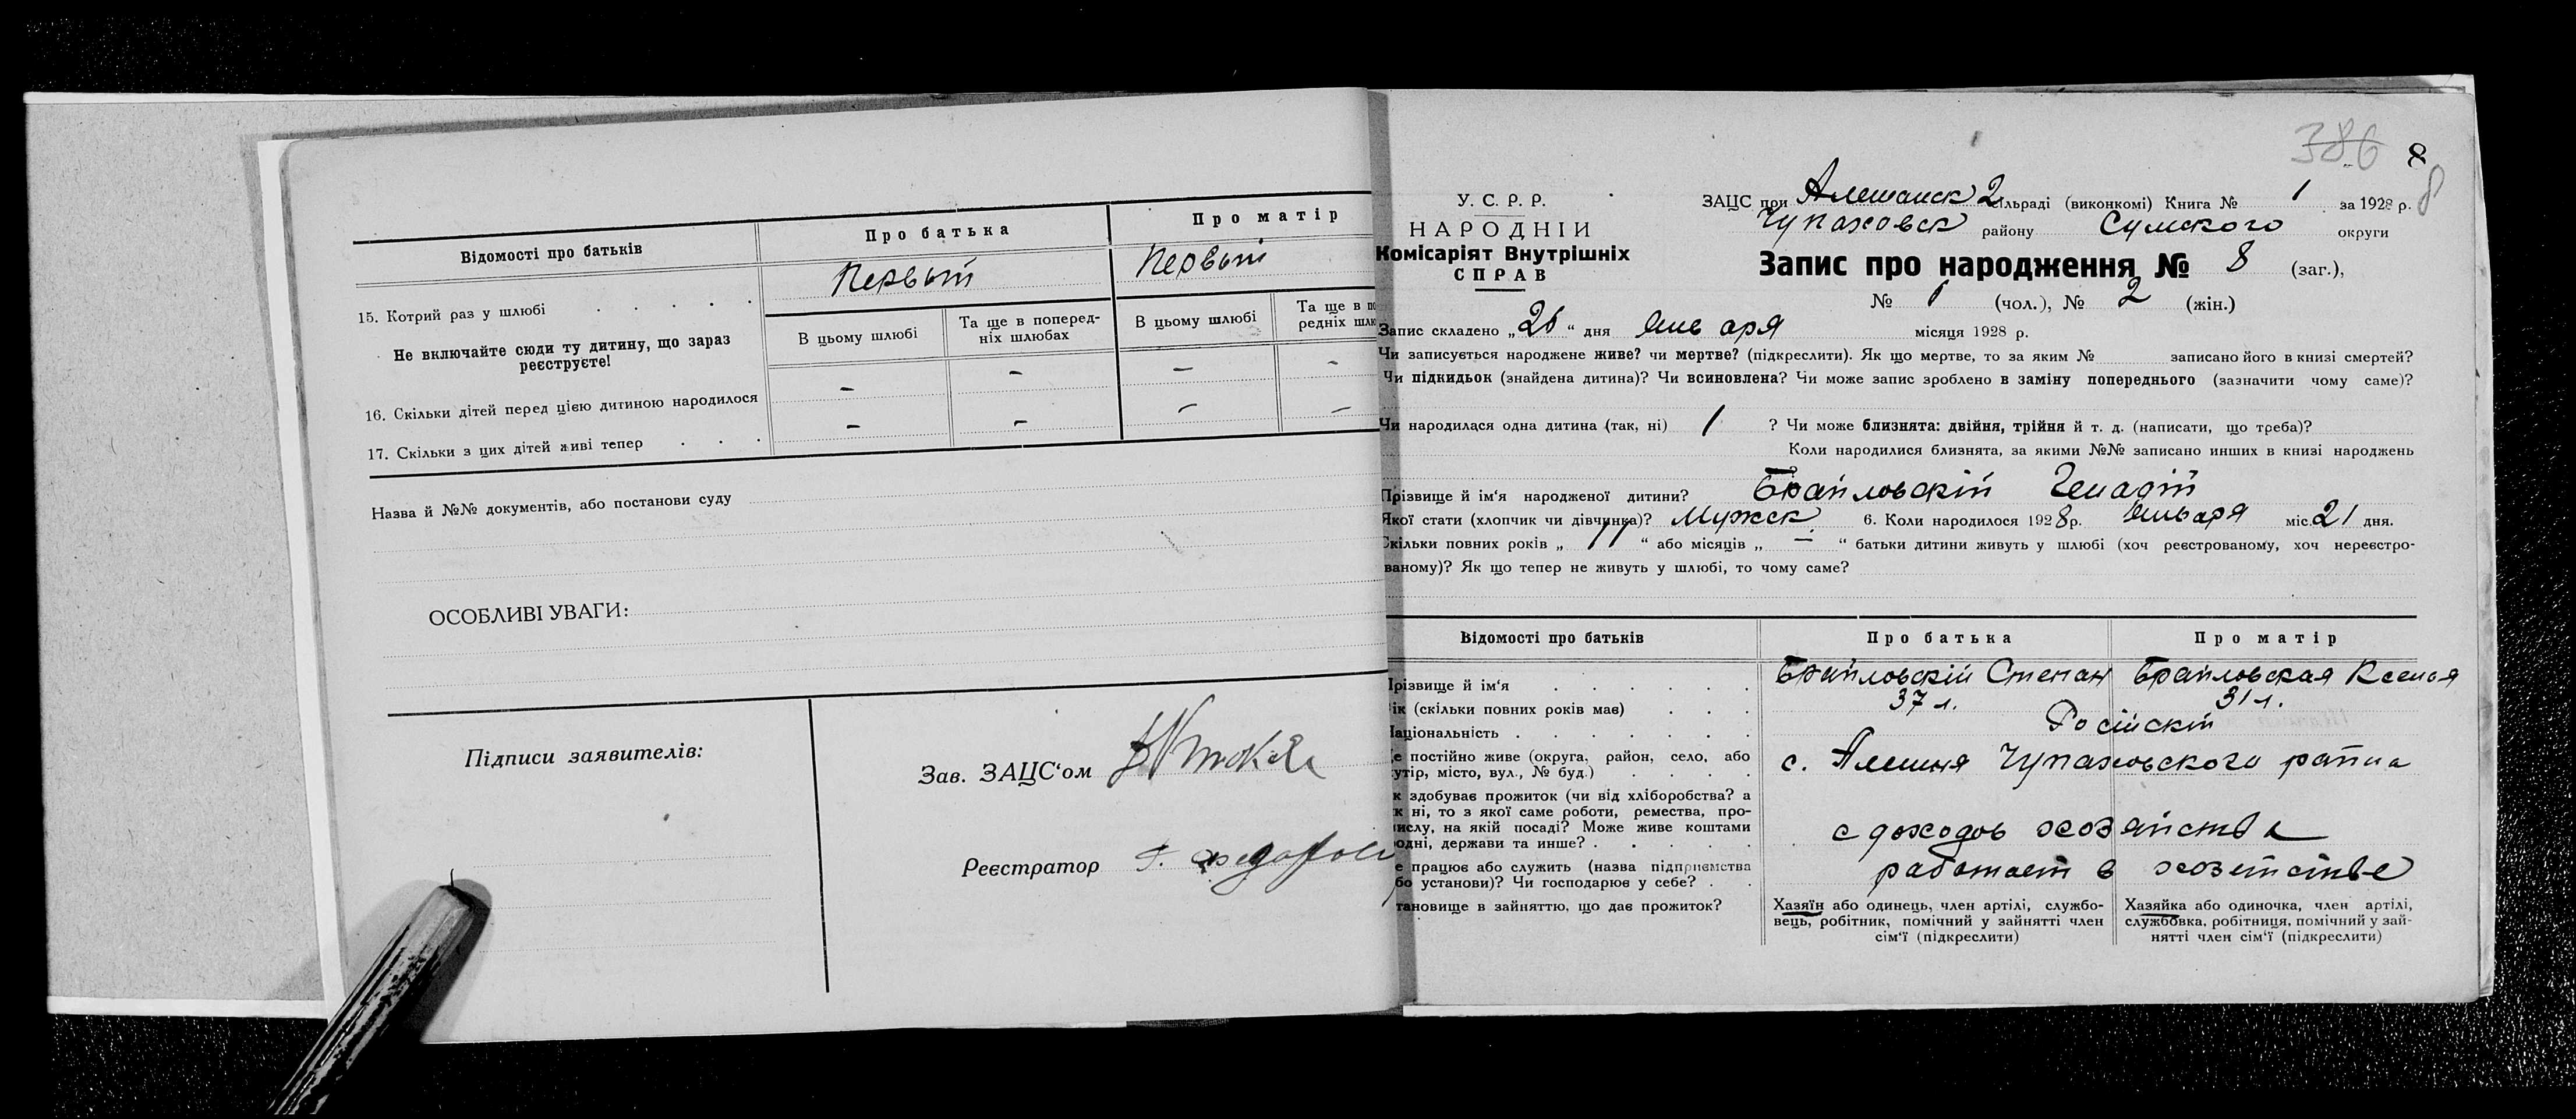 Відомості про батьків
Про батька
Про матір
15. Котрий раз у шлюбі . . . .
Первый
Первый
Не включайте сюди ту дитину, що зараз
реєструєте!
В цьому шлюбі
Та ще в поперед-
ніх шлюбах
В цьому шлюбі
Та ще в по
редніх шлю
16. Скільки дітей перед цією дитиною народилося
– – – –
17. Скільки з цих дітей живі тепер . . .
– – – –
Назва й №№ документів, або постанови суду
ОСОБЛИВІ УВАГИ:
Підписи заявителів:
Зав. ЗАЦС'ом
Реєстратор
386 8
8
У. С. Р. Р.
НАРОДНІЙ
Комісаріят Внутрішніх
СПРАВ
ЗАЦС при Алешанск 2 сільраді (виконкомі) Книга № 1 за 1928 р.
Чупаховск району Сумского округи
Запис про народження № 8 (заг.),
№ 6 (чол.), № 2 (жін.)
Запис складено „26“ дня Января місяця 1928 р.
Чи записується народжене живе? чи мертве? (підкреслити). Як що мертве, то за яким № записано його в книзі смертей?
Чи підкидьок (знайдена дитина)? Чи всиновлена? Чи може запис зроблено в заміну попереднього (зазначити чому саме)?
Чи народилася одна дитина (так, ні) 1 ? Чи може близнята: двійня, трійня й т. д. (написати, що треба)?
Коли народилися близнята, за якими №№ записано инших в книзі народжень
Прізвище й ім'я народженої дитини? Брайловскій Генадій
Якої стати (хлопчик чи дівчинка)? Мужск. 6. Коли народилося 1928 р. Января міс. 21 дня.
Скільки повних років „11“ або місяців „—“ батьки дитини живуть у шлюбі (хоч реєстрованому, хоч нереєстро-
ваному)? Як що тепер не живуть у шлюбі, то чому саме?
Відомості про батьків
Про батька
Про матір
Прізвище й ім'я . . . . . .
Брайловскій Степан
Брайловская Ксенья
ік (скільки повних років має) . . .
37 л.
31 л.
Національність . . . . . . .
Російскій
е постійно живе (округа, район, село, або
утір, місто, вул., № буд.) . . . .
с. Алешня Чупаховского района
к здобуває прожиток (чи від хліборобства? а
к ні, то з якої саме роботи, ремества, про-
ислу, на якій посаді? Може живе коштами
одні, держави та инше? . . . . .
с доходов хозяйства
е працює або служить (назва підприємства
бо установи)? Чи господарює у себе? . .
работает в хозействе
тановище в зайняттю, що дає прожиток?
Хазяїн або одинець, член артілі, службо-
вець, робітник, помічний у зайнятті член
сім'ї (підкреслити)
Хазяйка або одиночка, член артілі,
службовка, робітниця, помічний у зай-
нятті член сім'ї (підкреслити)